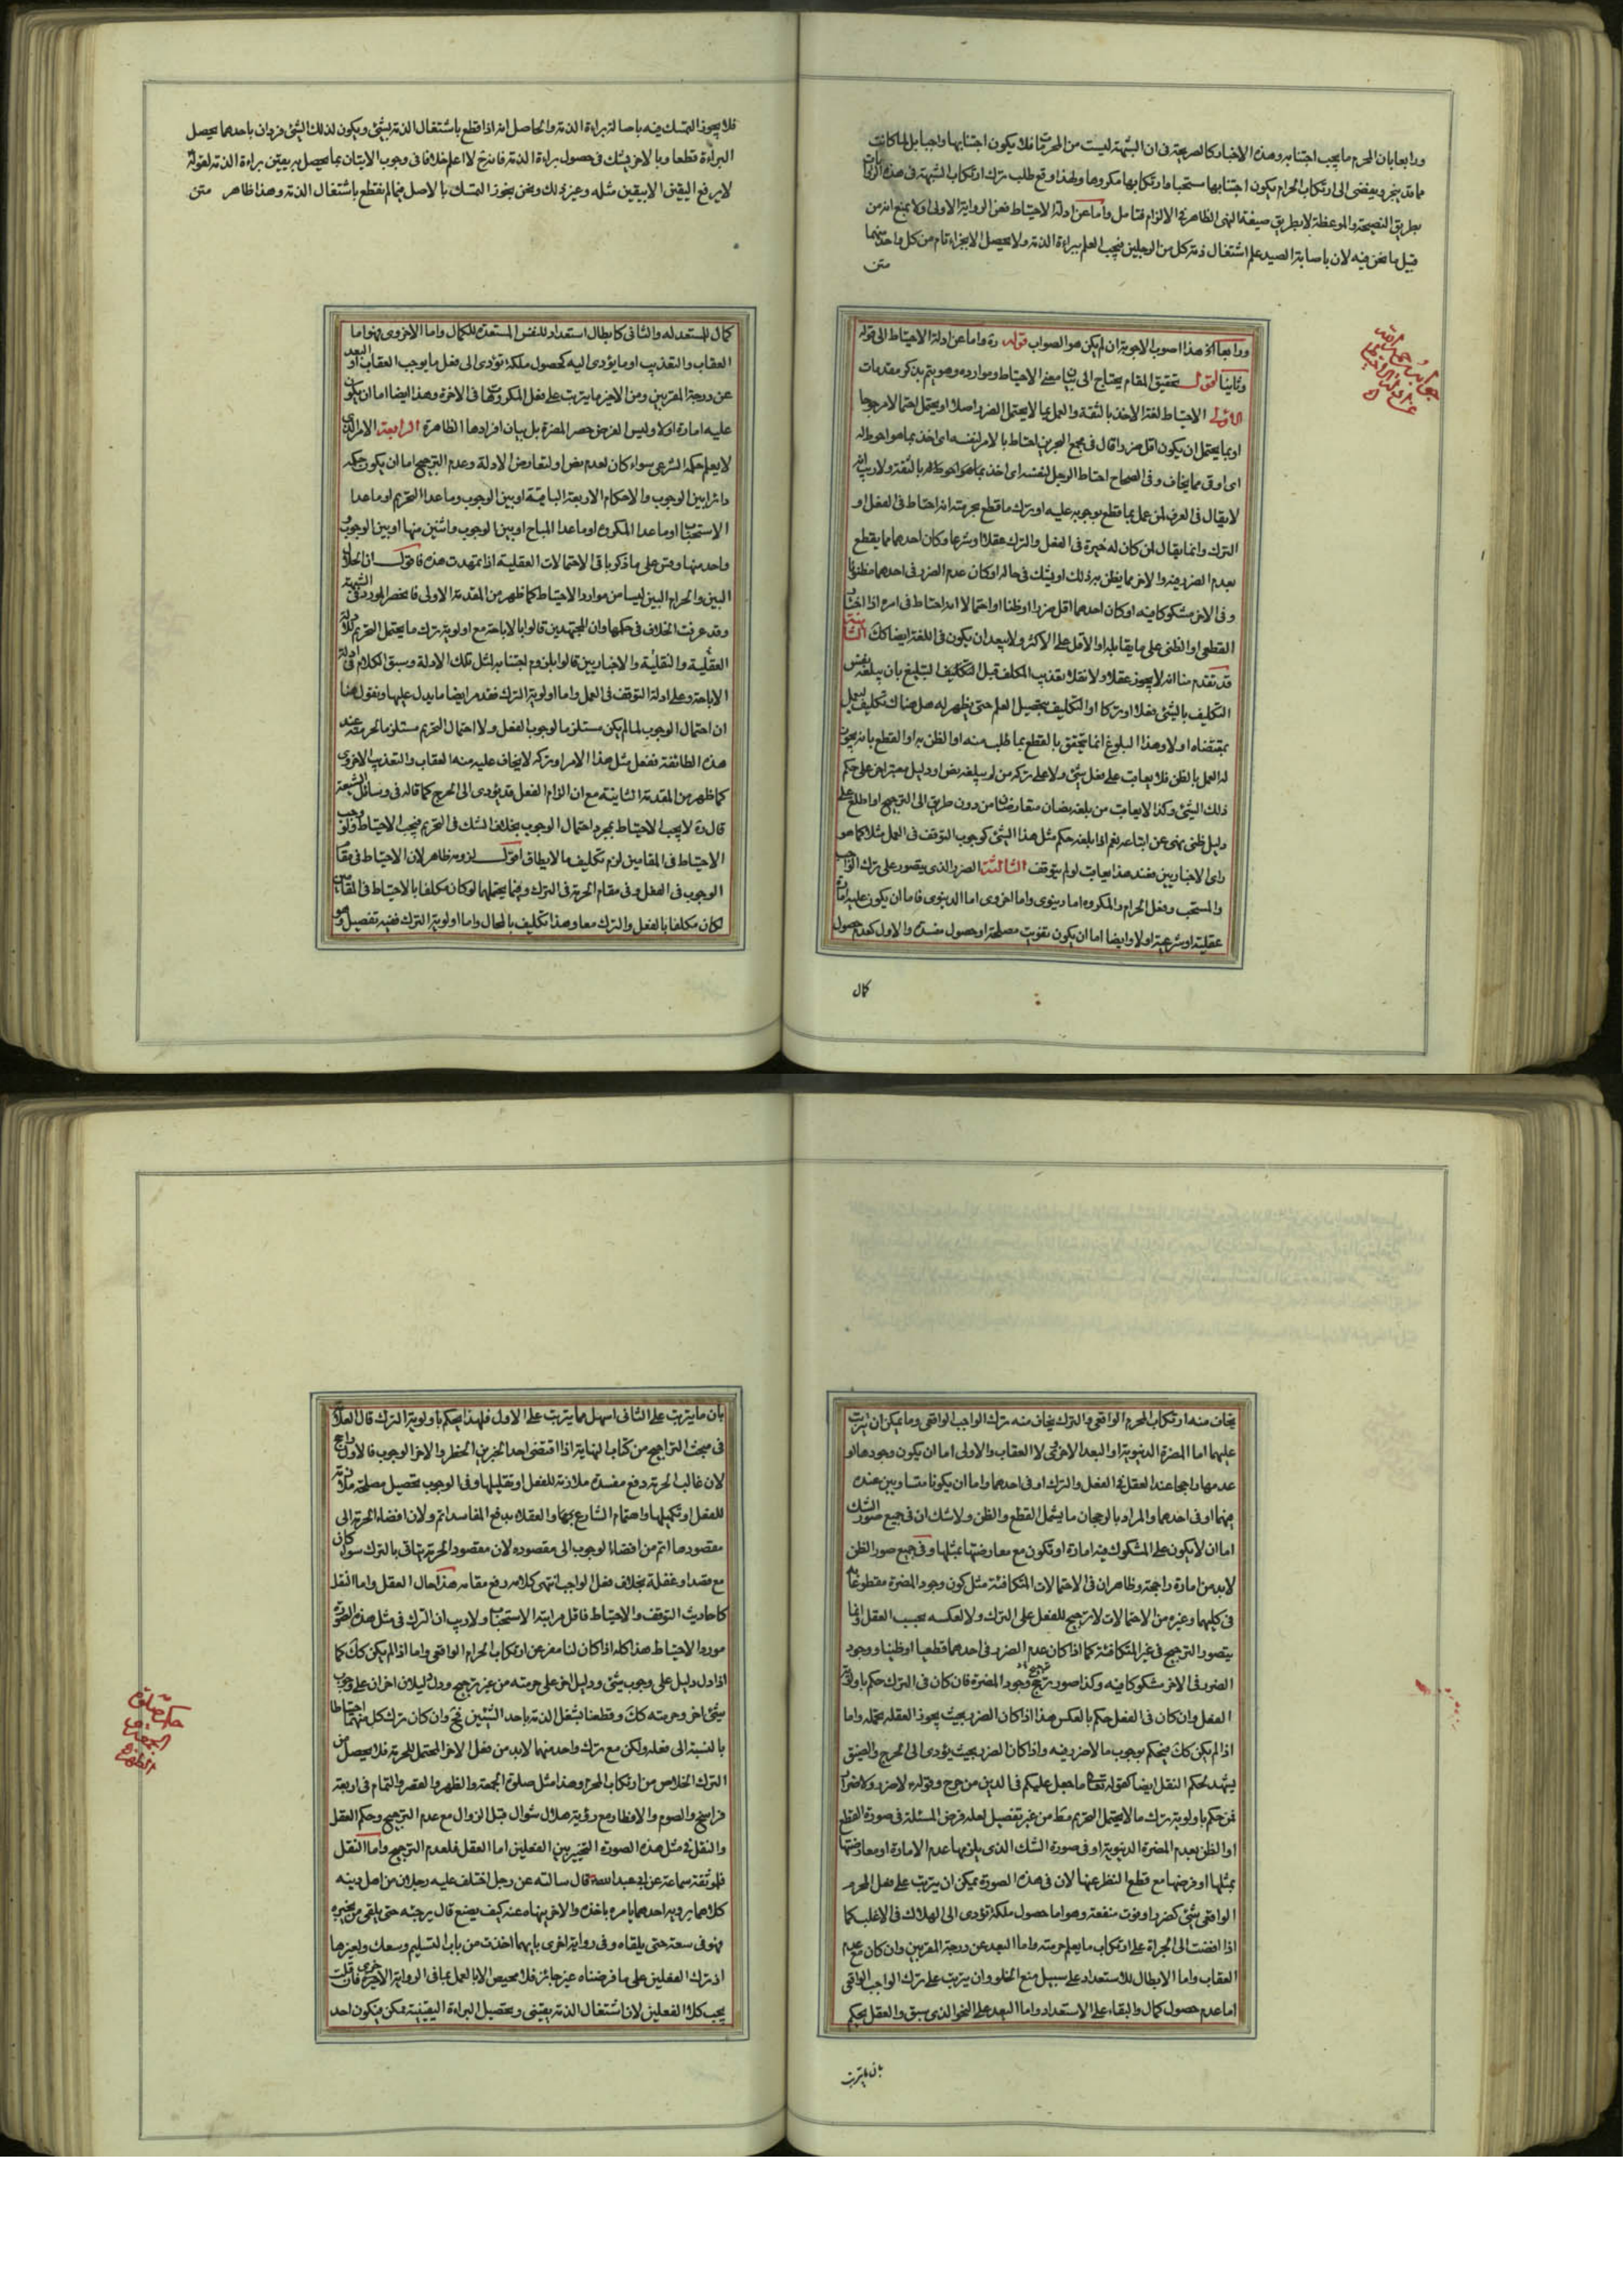 ورابعا بان المحرم ما يجب اجتنابه وهذه الاخبار كالصريحة فى ان الشبهة ليست من المحرمات فلا يكون اجتنابها واجبا بل لما كانت
مما قد ينجر ويفضى الى ارتكاب الحرام يكون اجتنابها مستحبا وارتكابها مكروها ولهذا وقع طلب ترك ارتكاب الشبهة فى هذه الروايات
بطريق النصيحة والموعظة لا بطريق صيغة النهى الظاهرة فى الالزام فتامل واما عن ادلة الاحتياط فعن الرواية الاولى اولا بمنع انه من
قبيل ما نحن فيه لان باصابة الصيد علم اشتغال ذمة كل من الرجلين فيجب العلم ببراءة الذمة ولا يحصل الا بجزاء تام من كل واحد منهما
متن
ورابعا اه هذا اصوب الاجوبة ان لم يكن هو الصواب قوله ره واما عن ادلة الاحتياط الى قوله
وثانيا اقول تحقيق المقام يحتاج الى بيان معنى الاحتياط وموارده وهو يتم بذكر مقدمات
الاولى الاحتياط لغة الاخذ بالثقة والعمل بما لا يحتمل الضرر اصلا او يحتمل احتمالا مرجوحا
او بما يحتمل ان يكون اقل ضررا قال فى مجمع البحرين احتاط بالامر لنفسه اى اخذ بما هو احوط له
اى اوقى مما يخاف وفى الصحاح احتاط الرجل لنفسه اى اخذ بما هو احوط له بالثقة ولا ريب انه
لا يقال فى العرف لمن عمل بما قطع بوجوبه عليه او بترك ما قطع بحرمته انه احتاط فى الفعل او
الترك وانما يقال لمن كان له خيرة فى الفعل والترك عقلا او شرعا وكان احدهما مما يقطع
بعدم الضرر فيه والاخر مما يظن به ذلك او يشك فى حاله او كان عدم الضرر فى احدهما مظنونا
وفى الاخر مشكوكا فيه او كان احدهما اقل ضررا او ظنا او احتمالا انه احتاط فى امره اذا اختار
القطعى او الظنى على ما يقابله او الاقل على الاكثر ولا يبعد ان يكون فى اللغة ايضا كك الثانية
قد تقدم منا انه لا يجوز عقلا ولا نقلا تعذيب المكلف قبل التكليف التبليغ بان يبلغه نفس
التكليف بالشئ فعلا او تركا او التكليف بتحصيل العلم حتى يظهر له هل هناك تكليف يعمل
بمقتضاه او لا وهذا البلوغ انما يتحقق بالقطع بما طلب منه او الظن به او القطع بانه يجوز
له العمل بالظن فلا يعاب على فعل شئ ولا على تركه من لم يبلغه نص او دليل معتبر اخر على حكم
ذلك الشئ وكذا لا يعاب من بلغه نصان متعارضان من دون طريق الى الترجيح او اطلع على
دليل ظنى نهى عن اتباعه نعم اذا بلغه حكم مثل هذا الشئ كوجوب التوقف فى العمل مثلا كما هو
راى الاخباريين فعند هذا يعاب لو لم يتوقف الثالثة الضرر الذى يتصور على ترك الواجب
والمستحب وفعل الحرام والمكروه اما دنيوى واما اخروى اما الدنيوى فاما ان يكون عليه امارة
عقلية او شرعية او لا وايضا اما ان يكون تفويت مصلحة او حصول مفسدة والاول كعدم حصول
كمال
فلا يجوز التمسك فيه باصالة براءة الذمة والحاصل انه اذا قطع باشتغال الذمة بشئ ويكون لذلك الشئ فردان باحدهما يحصل
البراءة قطعا وبالاخر يشك فى حصول براءة الذمة فانه ح لا اعلم خلافا فى وجوب الاتيان بما يحصل به يقين براءة الذمة لقوله
لا يرفع اليقين الا بيقين مثله وغير ذلك ونحن نجوز التمسك بالاصل فيما لم نقطع باشتغال الذمة وهذا ظاهر متن
كمال للمستعد له والثانى كابطال استعداد للنفس المستعدة للكمال واما الاخروى فهو اما
العقاب والتعذيب او ما يؤدى اليه كحصول ملكة تؤدى الى فعل ما يوجب العقاب او البعد
عن درجة المقربين ومن الاخير ما يترتب على فعل المكروهات فى الاخرة وهذا ايضا اما ان يكون
عليه امارة او لا وليس الغرض حصر المضرة بل بيان افرادها الظاهرة الرابعة الامر الذى
لا يعلم حكمه الشرعى سواء كان لعدم نص او لتعارض الادلة وعدم الترجيح اما ان يكون حكمه
دائرا بين الوجوب والاحكام الاربعة الباقية او بين الوجوب وما عدا التحريم او ما عدا
الاستحباب او ما عدا المكروه او ما عدا المباح او بين الوجوب واثنين منها او بين الوجوب و
واحد منها وقس على ما ذكر باقى الاحتمالات العقلية اذا تمهدت هذه فاقول ان الحلال
البين والحرام البين ليسا من موارد الاحتياط كما ظهر من المقدمة الاولى فانحصر المورد فى الشبهة
وقد عرفت الخلاف فى حكمها وان المجتهدين قالوا بالاباحة مع اولوية ترك ما يحتمل التحريم للادلة
العقلية والنقلية والاخباريين قالوا بلزوم اجتنابه لمثل تلك الادلة وسبق الكلام فى ادلة
الاباحة وعلى ادلة التوقف فى العمل واما اولوية الترك فقد مر ايضا ما يدل عليها ونقول هنا
ان احتمال الوجوب لما لم يكن مستلزما لوجوب الفعل ولا احتمال التحريم مستلزما لحرمته عند
هذه الطائفة ففعل مثل هذا الامر او تركه لا يخاف عليه منه العقاب والتعذيب الاخروى
كما ظهر من المقدمة الثانية مع ان الزام الفعل قد يؤدى الى الحرج كما قاله فى وسائل الشيعة
قال ره لا يجب الاحتياط بمجرد احتمال الوجوب بخلاف الشك فى التحريم فيجب الاحتياط ولو وجب
الاحتياط فى المقامين لزم تكليف ما لا يطاق اقول لزومه ظاهر لان الاحتياط فى مقام
الوجوب فى الفعل وفى مقام الحرمة فى الترك وفيما يحتملهما لو كان مكلفا بالاحتياط فى المقامين
لكان مكلفا بالفعل والترك معا وهذا تكليف بالمحال واما اولوية الترك ففيه تفصيل وهو
يخاف منه ارتكاب المحرم الواقعى والترك يخاف منه ترك الواجب الواقعى وما يمكن ان يترتب
عليهما اما المضرة الدنيوية او البعد الاخروى لا العقاب والاولى اما ان يكون وجودها او
عدمها راجحا عند العقل فى الفعل والترك او فى احدهما واما ان يكونا متساويين عنده
فيهما او فى احدهما والمراد بالرجحان ما يشمل القطع والظن ولا شك ان فى جميع صور الشك
اما ان لا يكون على المشكوك فيه امارة او تكون مع معارضتها بمثلها وفى جميع صور الظن
لا بد من امارة راجحة وظاهر ان فى الاحتمالات المتكافئة مثل كون وجود المضرة مقطوعا به
فى كليهما وغيره من الاحتمالات لا ترجيح للفعل على الترك ولا لعكسه بحسب العقل وانما
يتصور الترجيح فى غير المتكافئة كما اذا كان عدم الضرر فى احدهما قطعيا او ظنيا ووجود
الضرر فى الاخر مشكوكا فيه وكذا صور ترجيح وجود المضرة فان كان فى الترك حكم باولوية
الفعل وان كان فى الفعل حكم بالعكس هذا اذا كان الضرر بحيث يجوز العقل تحمله واما
اذا لم يكن كك فيحكم بوجوب ما لا ضرر فيه واذا كان الضرر بحيث يؤدى الى الحرج والضيق
يشهد بحكم النقل ايضا كقوله تعالى ما جعل عليكم فى الدين من حرج وقوله لا ضرر ولا ضرار
فمن حكم باولوية ترك ما لا يحتمل التحريم مط من غير تفصيل لعله فرض المسئلة فى صورة القطع
او الظن بعدم المضرة الدنيوية او فى صورة الشك الذى يلزمها عدم الامارة او معارضتها
بمثلها او فرضها مع قطع النظر عنها لان فى هذه الصورة يمكن ان يترتب على فعل المحرم
الواقعى شئ كضرر او فوت منفعة وهو اما حصول ملكة تؤدى الى الهلاك فى الاغلب كما
اذا افضت الى الجراة على ارتكاب ما يعلم حرمته واما البعد عن درجة المقربين وان كان مع عدم
العقاب واما الابطال للاستعداد على سبيل منع الخلو وان يترتب على ترك الواجب الواقعى
اما عدم حصول كمال والبقاء على الاستعداد واما البعد على النحو الذى سبق والعقل يحكم
بان ما يترتب
بان ما يترتب على الثانى اسهل مما يترتب على الاول فلهذا يحكم باولوية الترك قال العلامة
فى مبحث التراجيح من كتاب النهاية اذا اقتضى احد الخبرين الحظر والاخر الوجوب فالاول راجح
لان غالب الحرمة دفع مفسدة ملازمة للفعل او تقليلها وفى الوجوب تحصيل مصلحة ملازمة
للفعل او تكميلها واهتمام الشارع والعقلاء بدفع المفاسد اتم ولان افضاء الحرمة الى
مقصودها اتم من افضاء الوجوب الى مقصوده لان مقصود الحرمة يتاتى بالترك سواء كان
مع قصد او غفلة بخلاف فعل الواجب انتهى كلامه رفع مقامه هذا حال العقل واما النقل
كاحاديث التوقف والاحتياط فاقل مراتبه الاستحباب ولا ريب ان الترك فى مثل هذه الصورة
مورد الاحتياط هذا كله اذا كان لنا مفر عن ارتكاب الحرام الواقعى واما اذا لم يكن كك كما
اذا دل دليل على وجوب شئ ودليل اخر على حرمته من غير ترجيح ودل دليلان اخران على وجوب
شئ اخر وحرمته كك وقطعنا بشغل الذمة باحد الشيئين فح وان كان ترك كل منهما احتياطا
بالنسبة الى فعله ولكن مع ترك واحد منهما لا بد من فعل الاخر المحتمل للحرمة فلا يحصل من
الترك الخلاص من ارتكاب المحرم وهذا مثل صلوة الجمعة والظهر والقصر والتمام فى اربعة
فراسخ والصوم والافطار مع رؤية هلال شوال قبل الزوال مع عدم الترجيح وحكم العقل
والنقل فى مثل هذه الصورة التخيير بين الفعلين اما العقل فلعدم الترجيح واما النقل
فلموثقة سماعة عن ابى عبد الله قال سالته عن رجل اختلف عليه رجلان من اهل دينه
كلاهما يرويه احدهما يامر باخذه والاخر ينهاه عنه كيف يصنع قال يرجئه حتى يلقى من يخبره
فهو فى سعة حتى يلقاه وفى رواية اخرى بايهما اخذت من باب التسليم وسعك ولغيرها
اذ ترك الفعلين على ما فرضناه غير جائز فلا محيص الا بالعمل بما فى الرواية الاخرى فان قلت
يجب كلا الفعلين لان اشتغال الذمة يقينى وتحصيل البراءة اليقينية ممكن فيكون احد